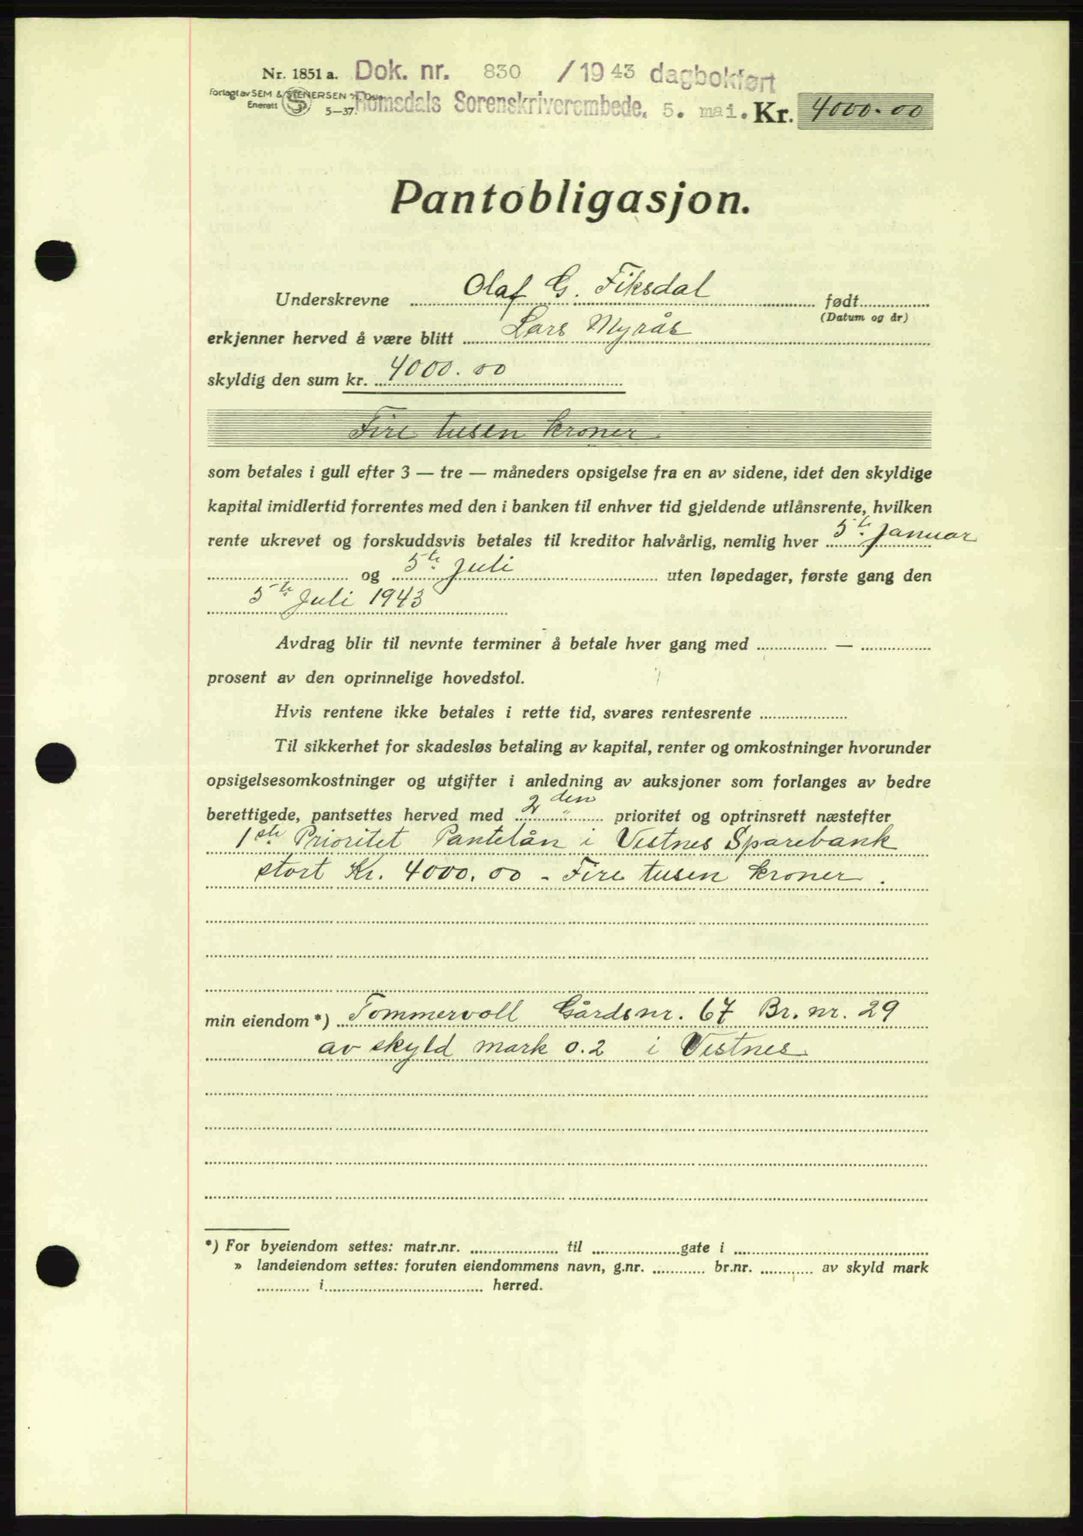 Nr. 1851 a. Dok. nr. 830 / 1943 dagbokført
Forlagt av SEM & STENERSEN A/S, Oslo
Enerett 5—37. Romsdals Sorenskriverembede. 5. mai. Kr. 4000.00
Pantobligasjon.
Underskrevne Olaf G. Fiksdal født
(Datum og år)
erkjenner herved å være blitt Lars Myrås
skyldig den sum kr. 4000.00
Fire tusen kroner
som betales i gull efter 3 — tre — måneders opsigelse fra en av sidene, idet den skyldige
kapital imidlertid forrentes med den i banken til enhver tid gjeldende utlånsrente, hvilken
rente ukrevet og forskuddsvis betales til kreditor halvårlig, nemlig hver 5te Januar
og 5te Juli uten løpedager, første gang den
5te Juli 1943
Avdrag blir til nevnte terminer å betale hver gang med — 
prosent av den oprinnelige hovedstol.
Hvis rentene ikke betales i rette tid, svares rentesrente
Til sikkerhet for skadesløs betaling av kapital, renter og omkostninger hvorunder
opsigelsesomkostninger og utgifter i anledning av auksjoner som forlanges av bedre
berettigede, pantsettes herved med 2den prioritet og optrinsrett næstefter
1ste Prioritet Pantelån i Vestnes Sparebank
stort Kr. 4000.00 - Fire tusen kroner.
min eiendom *) Tommervoll Gårdsnr. 67 Br. nr. 29
av skyld mark 0.2 i Vestnes
*) For byeiendom settes: matr.nr. til gate i
» landeiendom settes: foruten eiendommens navn, g.nr. br.nr. av skyld mark
i herred.